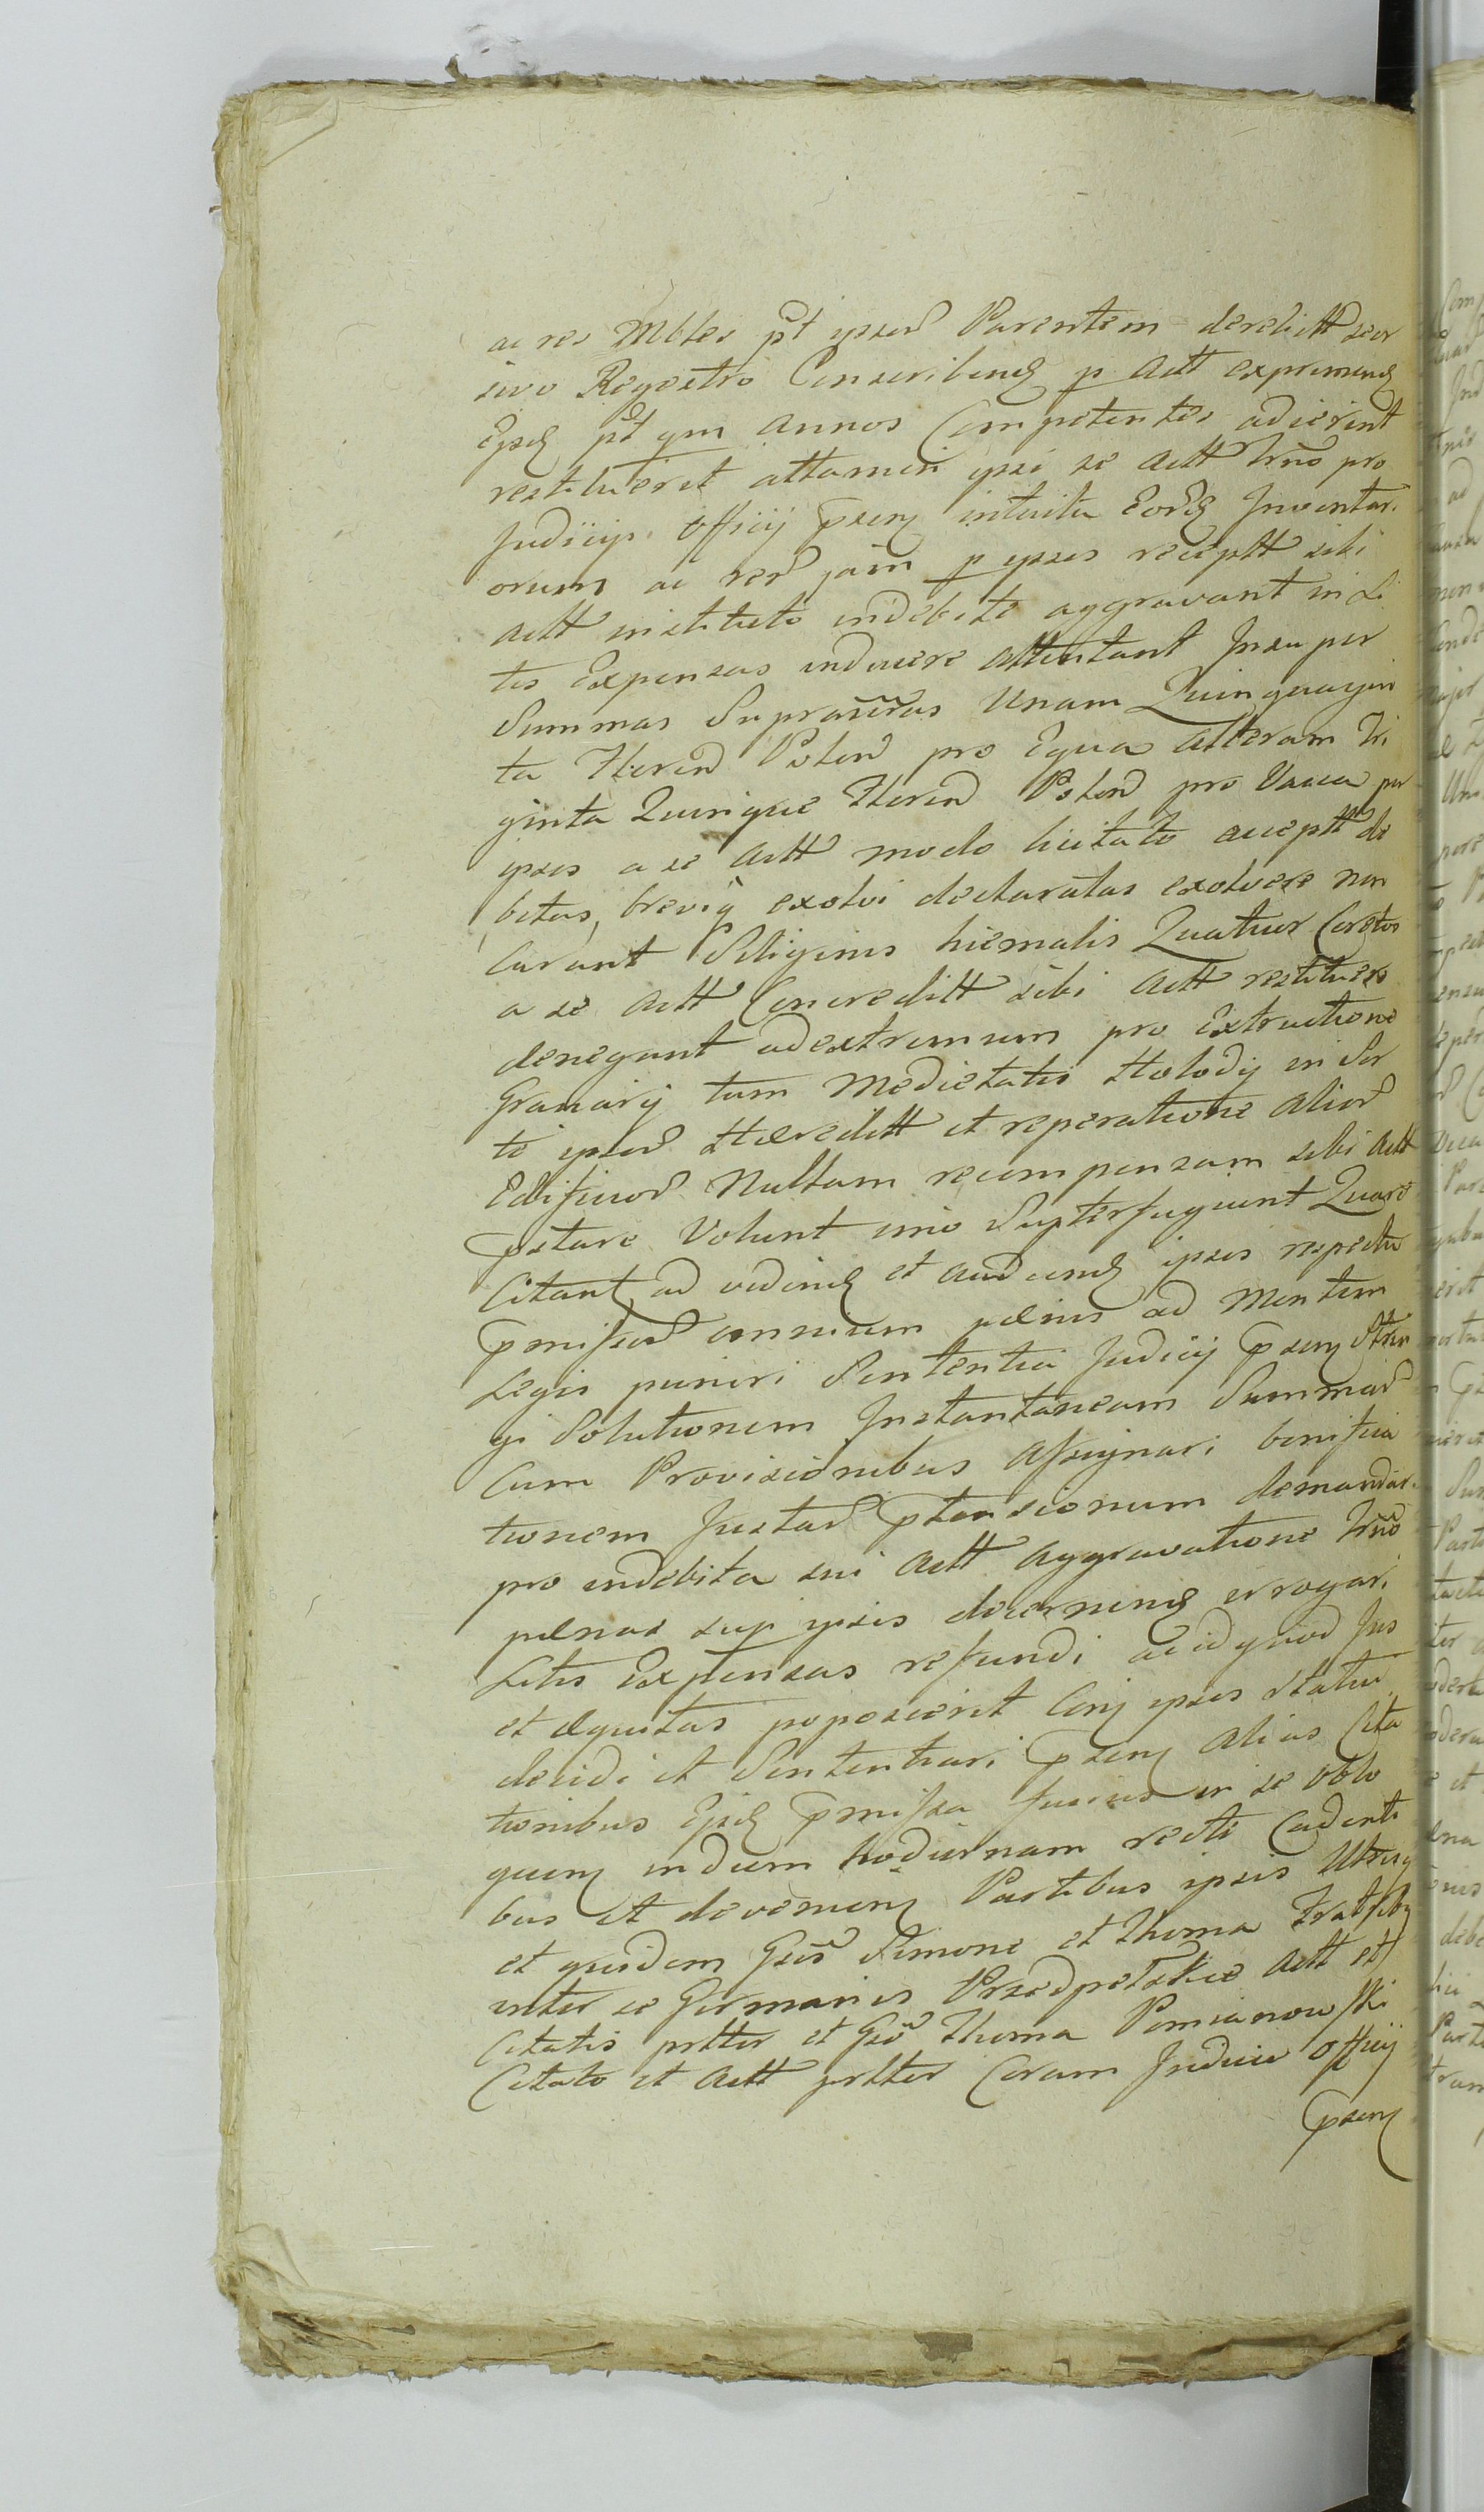 ac res Mbles pt ipsor Parentem derelictt seor
sivo Regestro Conscribend p Actt exprimend
Ejsd pt qm annos Competentes adierint
restituerit attamen ipsi se Actt trno pro
Judicijs officij psen intuitu Eord Inventari
orum ac rer jam p ipsos receptt sibi
Actt instituto indebite aggravant in Li
tis Expensas inducere attentant Insuper
Summas Suprascras Unam Quinquagin
ta floren Polon pro Equa alteram Tri
ginta Quinque floren Polon pro Vacca per
ipsos a se Actt modo licitato acceptt de
bitas, breviq exolvi declaratas exolvere non
Curant Siliginis hiemalis Quatuor Coretos
a se Actt Concreditt sibi Actt restituere
denegant ad extremum pro Extructione
Granarij tum Medietatis Stolody in Sor
te ipsor Hæreditt et reperatione alior
Edificior Nullam recompensam sibi Actt
pstare Volunt imo Supterfugiunt Quare
Citant ad videnđ et audienđ ipsos respectu
pmissor omnium pœnis ad Mentem
Legis puniri Sententia Judicij psen Strin
gi Solutionem Instantaneam Summar
Cum Provisionibus Assignari bonifica
tionem Justar ptensionum demandari
pro indebita sui Actt Aggravatione trno
pœnas sup ipsis decernend irrogari
Litis Expensas refundi ac id quod Jus
et æquitas poposcerit Conj ipsos statui
decidi et Sententiari psen alias Cita
tionibus Ejsd pmissa fusius in se Oblo
quen in diem hodiernam recte Cadenti
bus et devenien Partibus ipsis Utrisq
et quidem Gsis Simone et Thoma Fratribq
inter se Germanis Przedpełskie Actt et
Citatis prtter et Gso Thoma Pomianowski
Citato et Actt prtter Coram Judicio Officij
psen